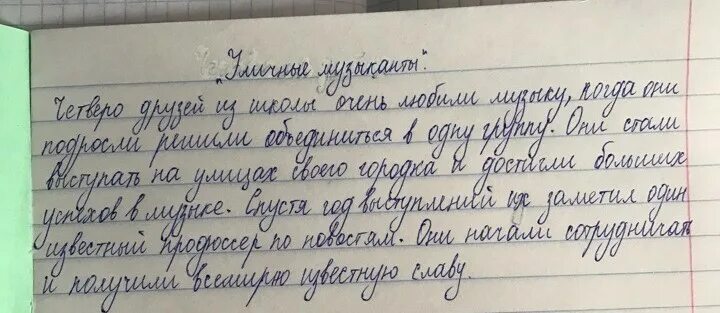 "Уличные музыканты".
Четверо друзей из школы очень любили музыку, когда они
подросли решили объединиться в одну группу. Они стали
выступать на улицах своего городка и достигли больших
успехов в музыке. Спустя год выступлений их заметил один
известный продюссер по новостям. Они начали сотрудничать
и получили всемирно известную славу.